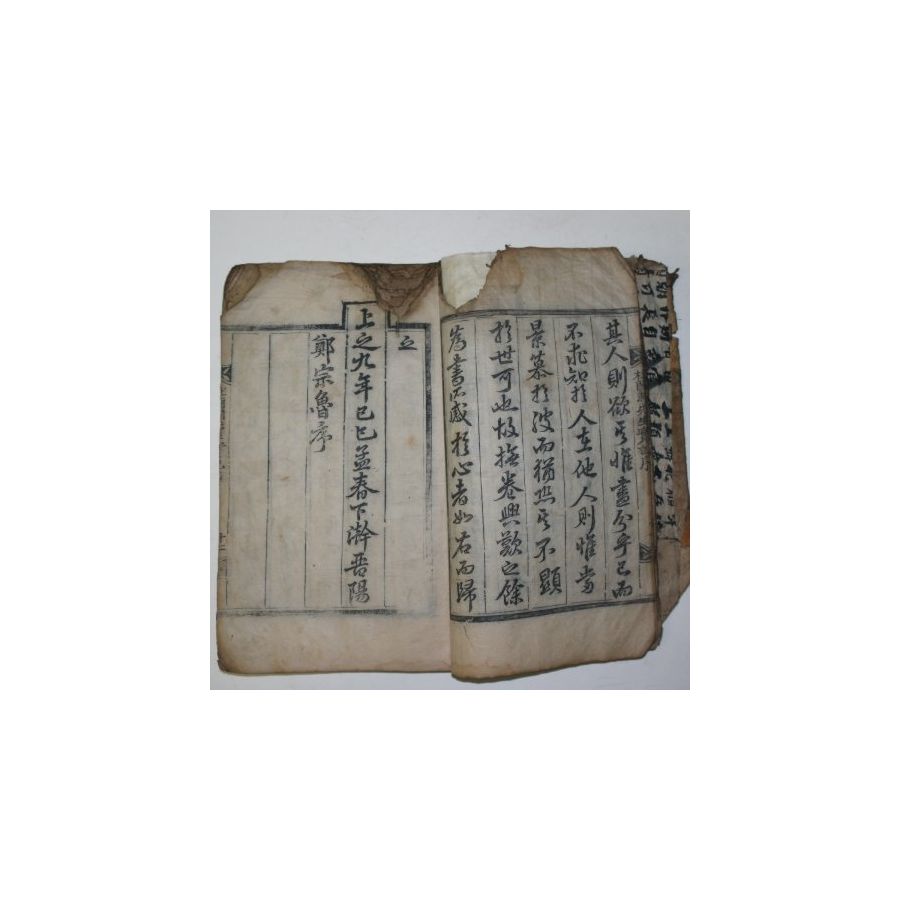 其人則欲其惟盡分乎已而
不求知於人在他人則惟當
景慕於彼而猶恐其不顯
於世可也故撫卷興歎之餘
爲書所感於心者如右而歸
之
上之九年己巳孟春下澣晋陽
鄭宗魯序